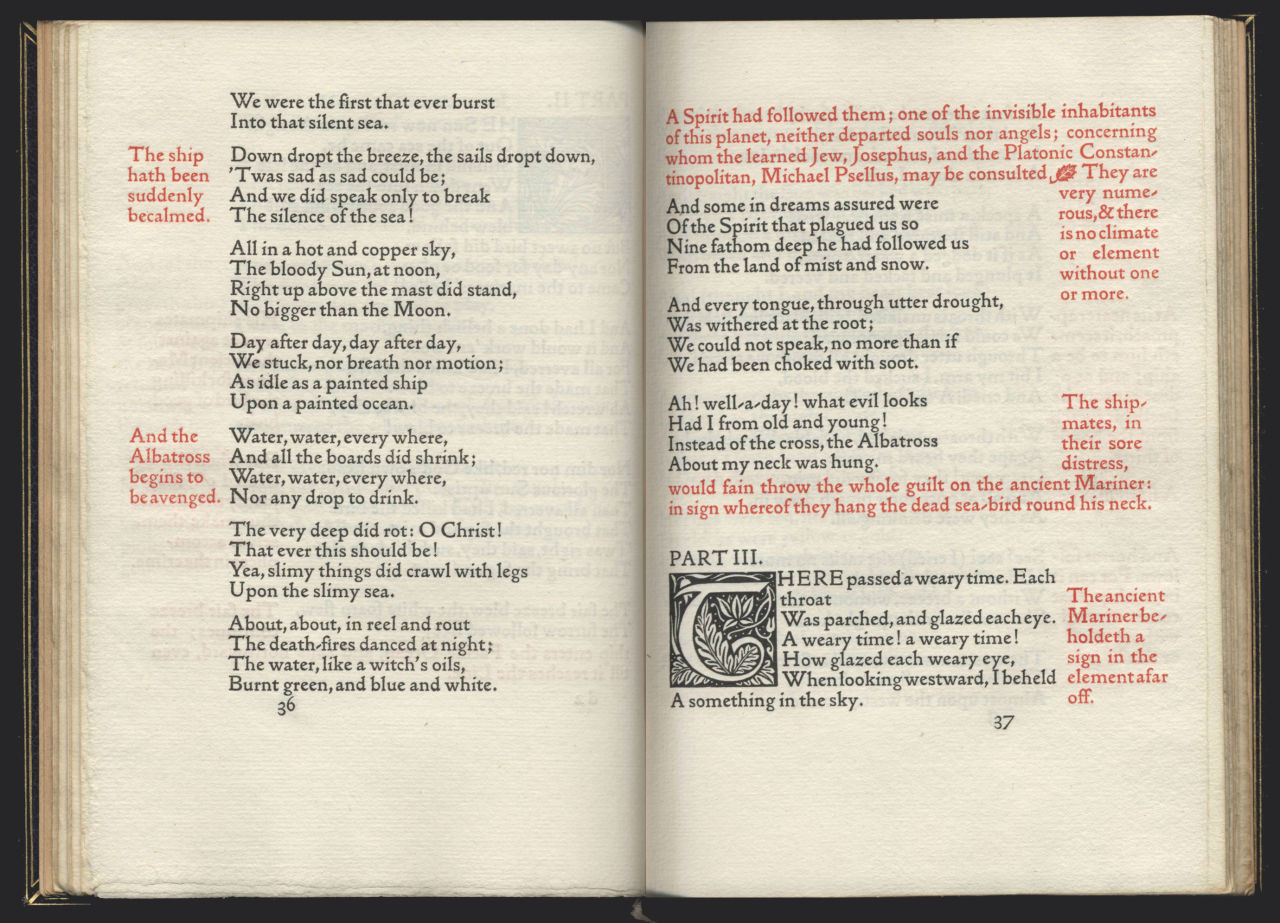 We were the first that ever burst
Into that silent sea.
The ship
hath been
suddenly
becalmed.
Down dropt the breeze, the sails dropt down,
'Twas sad as sad could be;
And we did speak only to break
The silence of the sea!
All in a hot and copper sky,
The bloody Sun, at noon,
Right up above the mast did stand,
No bigger than the Moon.
Day after day, day after day,
We stuck, nor breath nor motion;
As idle as a painted ship
Upon a painted ocean.
And the
Albatross
begins to
be avenged.
Water, water, every where,
And all the boards did shrink;
Water, water, every where,
Nor any drop to drink.
The very deep did rot: O Christ!
That ever this should be!
Yea, slimy things did crawl with legs
Upon the slimy sea.
About, about, in reel and rout
The death-fires danced at night;
The water, like a witch's oils,
Burnt green, and blue and white.
36
A Spirit had followed them; one of the invisible inhabitants
of this planet, neither departed souls nor angels; concerning
whom the learned Jew, Josephus, and the Platonic Constan-
tinopolitan, Michael Psellus, may be consulted. They are
very nume-
rous, & there
is no climate
or element
without one
or more.
And some in dreams assured were
Of the Spirit that plagued us so
Nine fathom deep he had followed us
From the land of mist and snow.
And every tongue, through utter drought,
Was withered at the root;
We could not speak, no more than if
We had been choked with soot.
Ah! well-a-day! what evil looks
Had I from old and young!
Instead of the cross, the Albatross
About my neck was hung.
The ship-
mates, in
their sore
distress,
would fain throw the whole guilt on the ancient Mariner:
in sign whereof they hang the dead sea-bird round his neck.
PART III.
THERE passed a weary time. Each
throat
Was parched, and glazed each eye.
A weary time! a weary time!
How glazed each weary eye,
When looking westward, I beheld
A something in the sky.
The ancient
Mariner be-
holdeth a
sign in the
element afar
off.
37